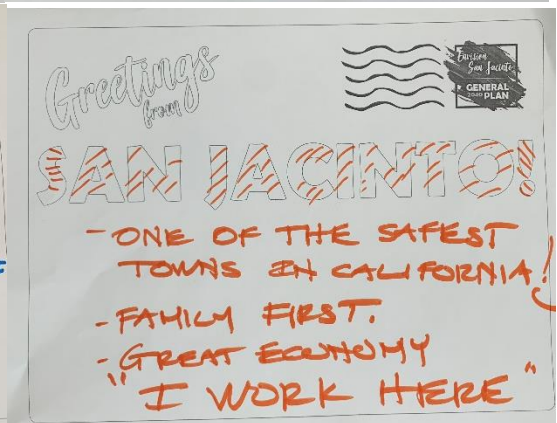 Greetings
from
Envision
San Jacinto
GENERAL
2040 PLAN
SAN JACINTO!
- ONE OF THE SAFEST
TOWNS IN CALIFORNIA!
- FAMILY FIRST.
- GREAT ECONOMY
"I WORK HERE"